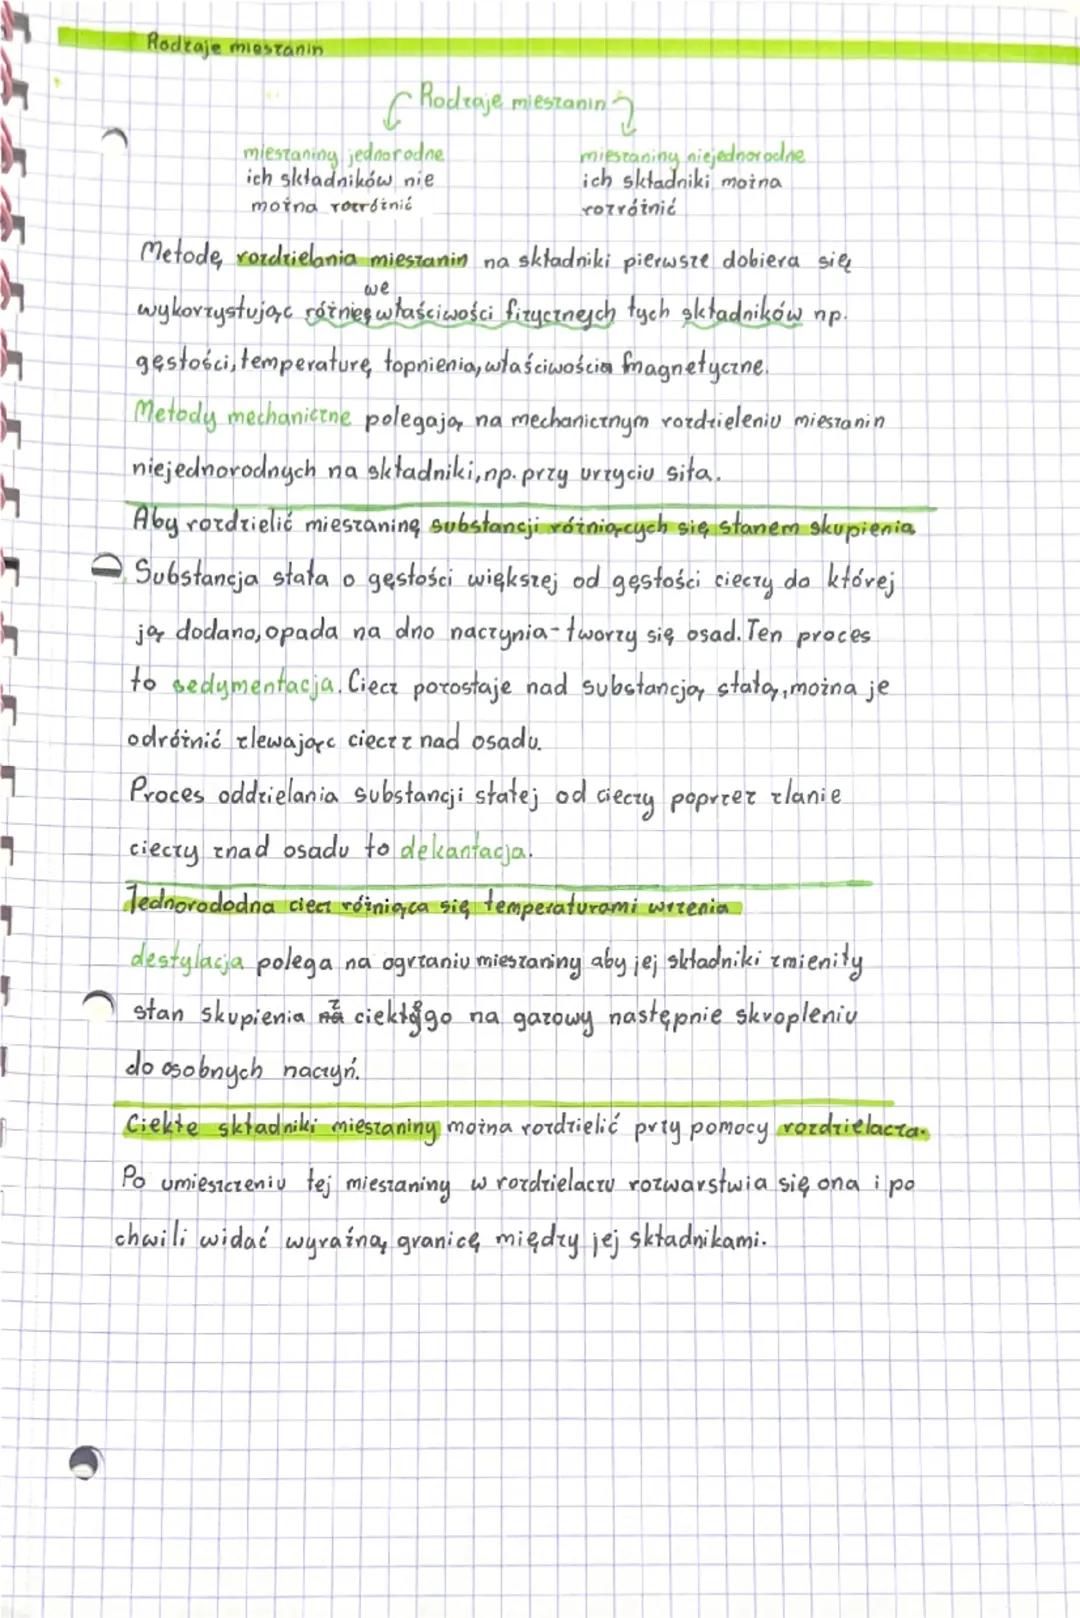 Rodzaje mieszanin
Rodzaje mieszanin
mieszaniny jednorodne
ich składników nie
można rozróżnić
mieszaniny niejednorodne
ich składniki można
rozróżnić
Metodę rozdzielania mieszanin na składniki pierwsze dobiera się
we
wykorzystując różnięwłaściwości fizycznejch tych składników np.
gęstości, temperaturę topnienia, właściwościa magnetyczne.
Metody mechaniczne polegają na mechanicznym rozdzieleniu mieszanin
niejednorodnych na składniki, np. przy urzyciu sita.
Aby rozdzielić mieszaninę substancji różniących się stanem skupienia
Substancja stała o gęstości większej od gęstości cieczy do której
ją dodano, opada na dno naczynia - tworzy się osad. Ten proces
to sedymentacja. Ciecz pozostaje nad substancją stałą, można je
odróżnić zlewając ciecz z nad osadu.
Proces oddzielania substancji stałej od cieczy poprzez zlanie
cieczy znad osadu to dekantacja.
Jednorododna ciecz różniąca się temperaturami wrzenia
destylacja polega na ogrzaniu mieszaniny aby jej składniki zmieniły
stan skupienia z ciekłego na gazowy następnie skropleniu
do osobnych naczyń.
Ciekłe składniki mieszaniny można rozdzielić przy pomocy rozdzielacza.
Po umieszczeniu tej mieszaniny w rozdzielaczu rozwarstwia się ona i po
chwili widać wyraźną granicę między jej składnikami.